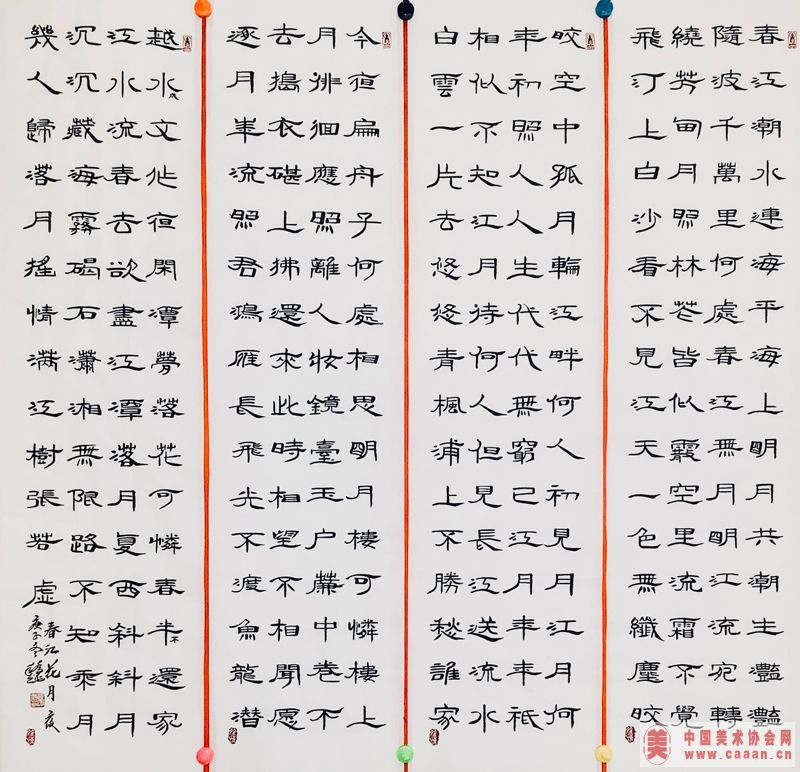 春江潮水連海平海上明月共潮生灩灩
隨波千萬里何處春江無月明江流宛轉
繞芳甸月照林花皆似霰空里流霜不覺
飛汀上白沙看不見江天一色無纖塵皎
皎空中孤月輪江畔何人初見月江月何
年初照人人生代代無窮已江月年年祇
相似不知江月待何人但見長江送流水
白雲一片去悠悠青楓浦上不勝愁誰家
今夜扁舟子何處相思明月樓可憐樓上
月徘徊應照離人妝鏡臺玉户簾中卷不
去搗衣碪上拂還來此時相望不相聞愿
逐月華流照君鴻雁長飛光不渡魚龍潛
越水成文昨夜閑潭夢落花可憐春半不還家
江水流春去欲盡江潭落月復西斜斜月
沉沉藏海霧碣石瀟湘無限路不知乘月
幾人歸落月搖情滿江樹張若虛
春江花月夜
庚子冬
美
中国美术协会网
www.caaan.cn